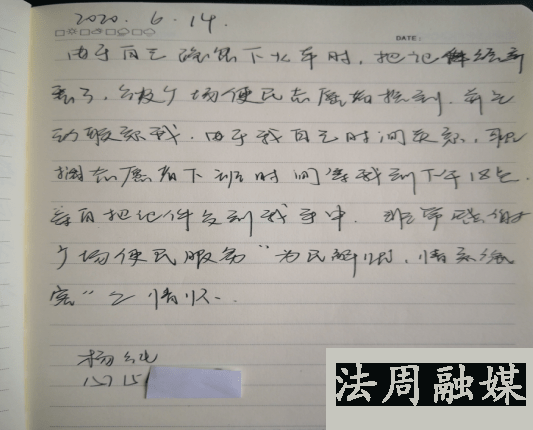 2020.6.14.
DATE:
由于自己 下火车时,把证件
丢了,广场便民志愿者捡到,并主
动联系我,由于我自己时间
志愿者下班时间等我到下午18点.
亲自把证件交到我手中.非常感谢
广场便民服务“为民解忧,情系
”之情怀.
杨
15715
法周融媒